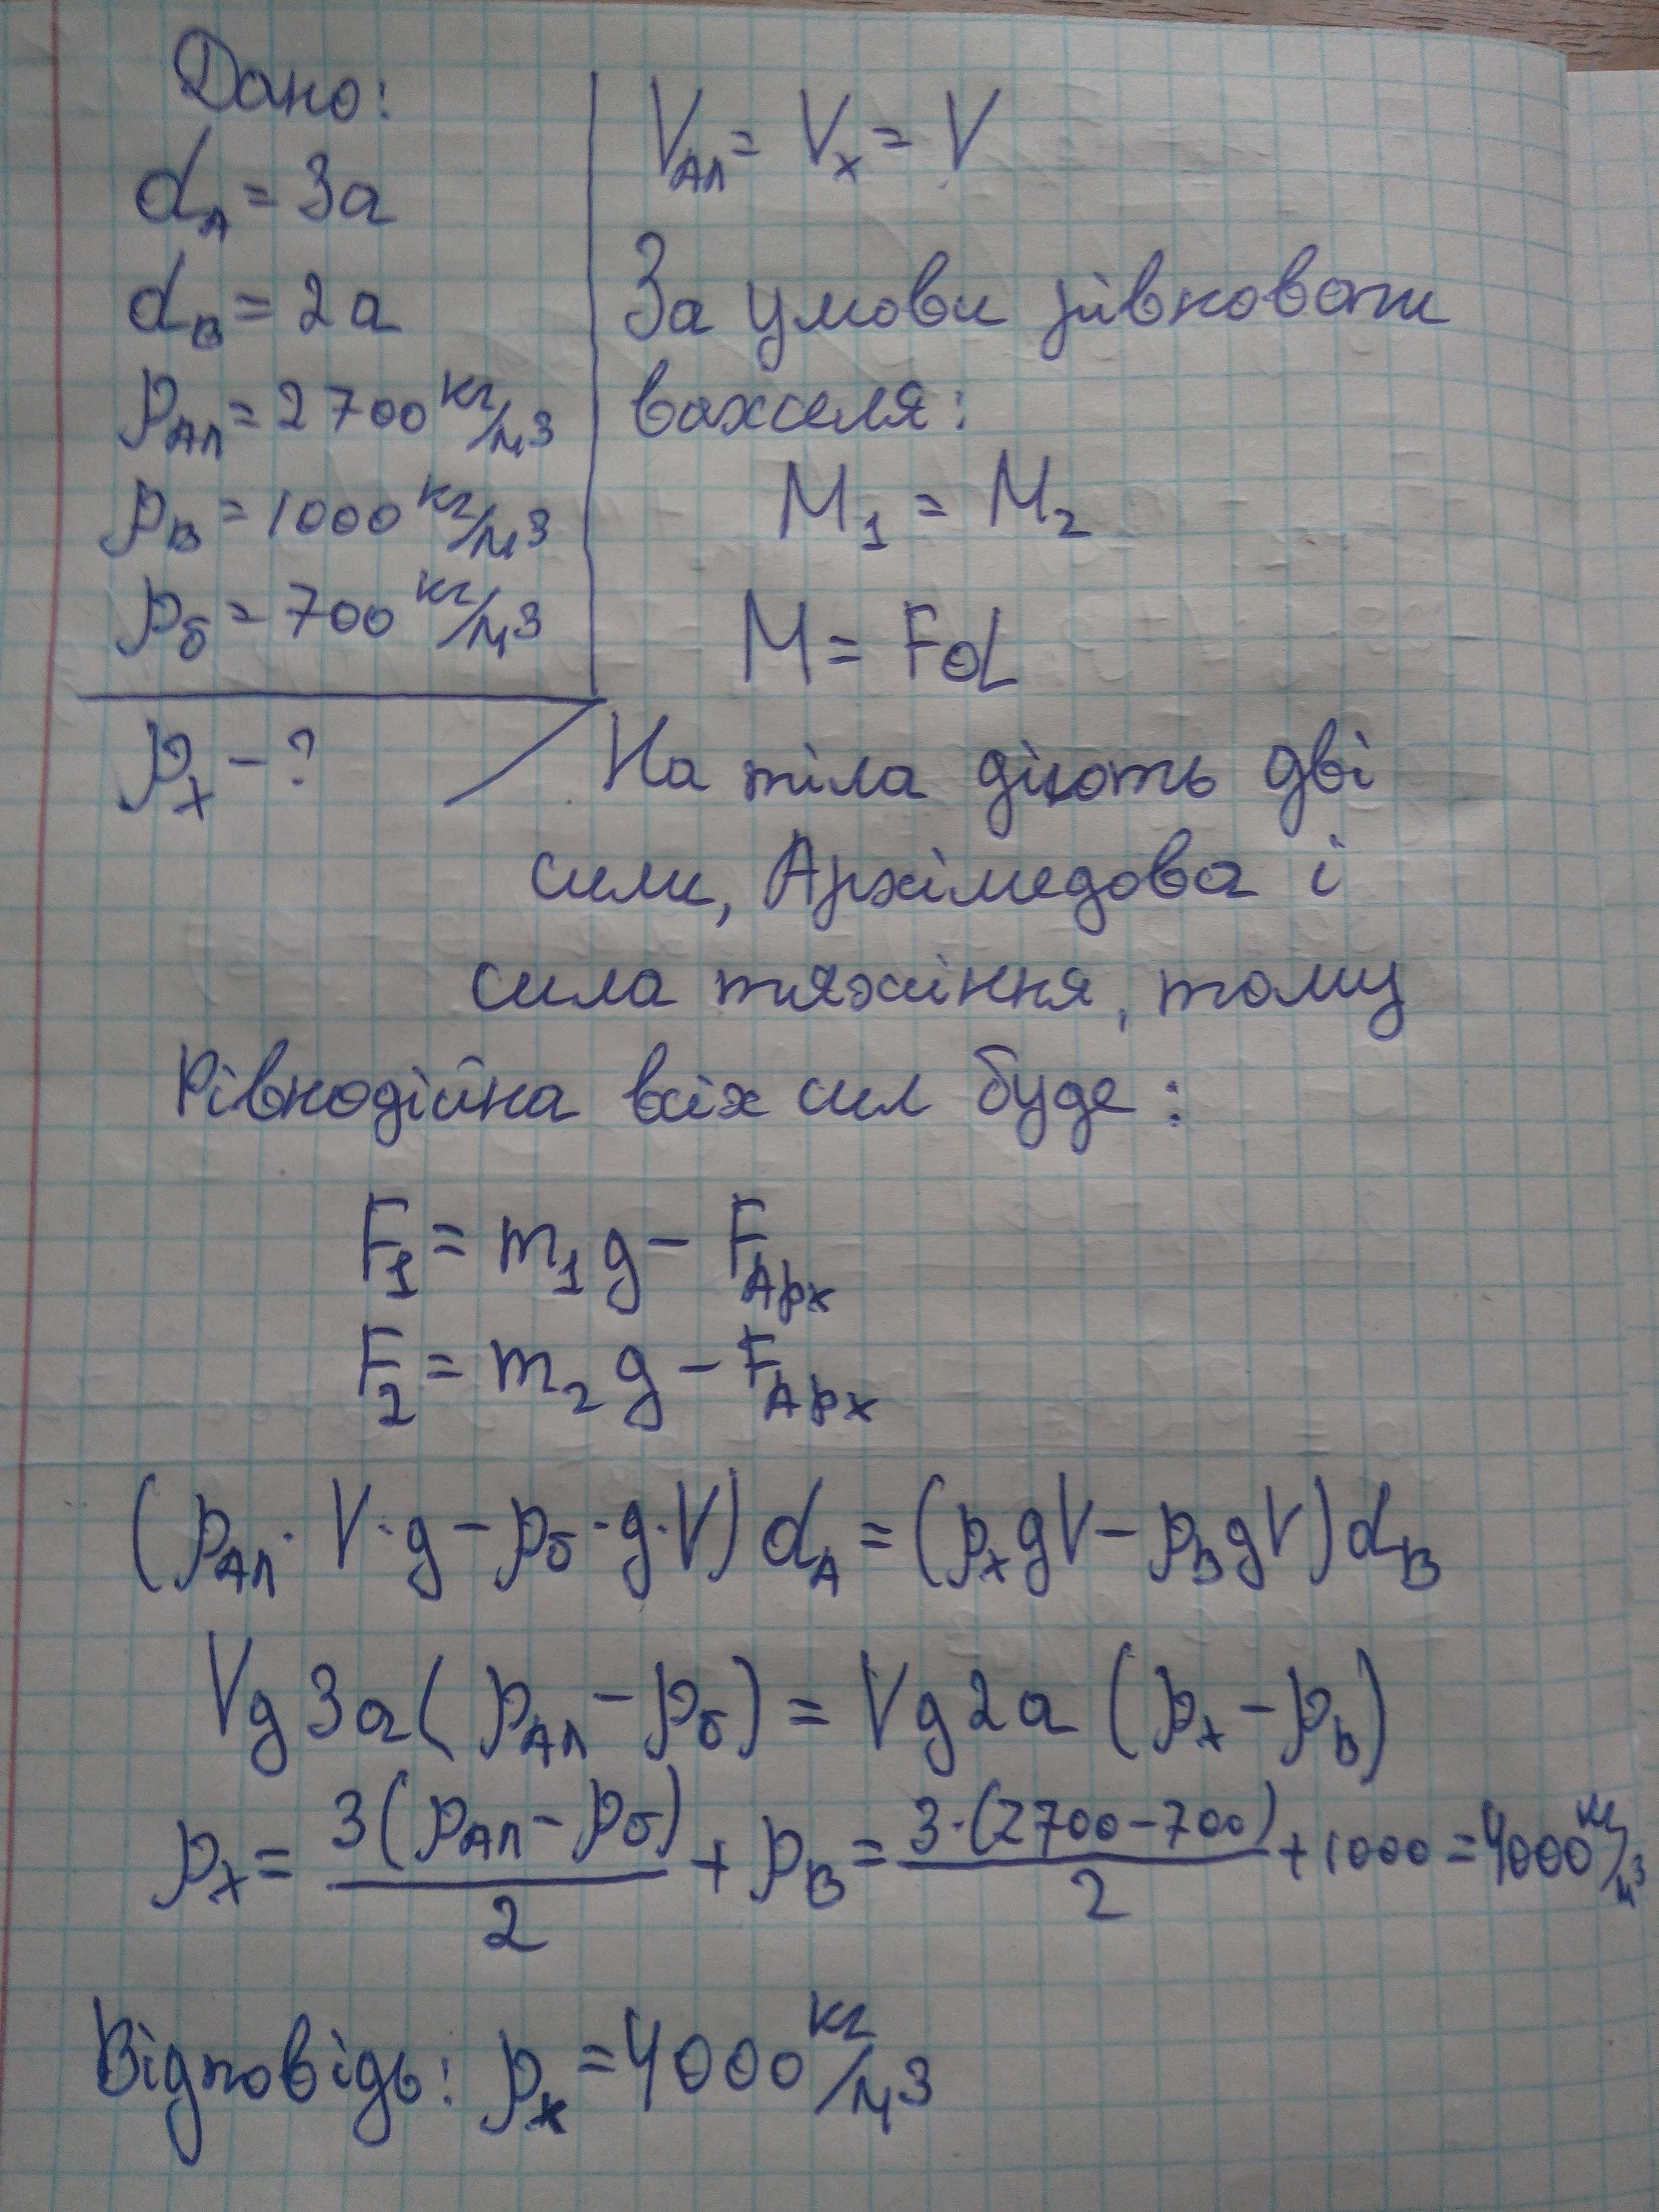 Дано:
d_A = 3a
d_B = 2a
ρ_Ал = 2700 кг/м3
ρ_в = 1000 кг/м3
ρ_б = 700 кг/м3
ρ_x - ?
V_Ал = V_x = V
За умови рівноваги
важеля:
M_1 = M_2
M = Fd
На тіла діють дві
сили, Архімедова і
сила тяжіння, тому
Рівнодійна всіх сил буде:
F_1 = m_1 g - F_Арх
F_2 = m_2 g - F_Арх
(ρ_Ал · V · g - ρ_б · g · V) d_A = (ρ_x gV - ρ_в gV) d_B
Vg 3a (ρ_Ал - ρ_б) = Vg 2a (ρ_x - ρ_в)
ρ_x = 3(ρ_Ал - ρ_б)/2 + ρ_в = 3·(2700-700)/2 + 1000 = 4000 кг/м3
Відповідь: ρ_x = 4000 кг/м3